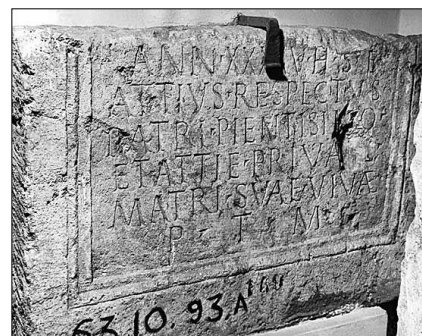 ANN · XX H · S · E
ATTIVS · RESPECTVS
PATRI · PIENTISIMO
ET ATTIE · PRIVAT
MATRI · SVAE · VIVAE
P · T · M ·
63.10.93.A 169